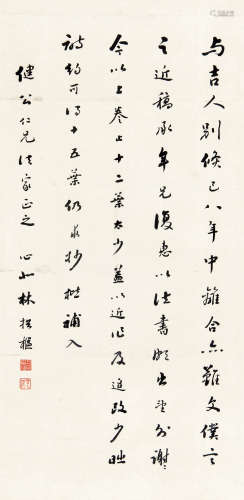 与吉人别倏已八年中虽合亦难文仆言
之近稿承年兄复惠以法书颇出望外谢
今以上卷上十二叶太少盖以近作及追改少昨
诗约可得十五叶仍求抄撮补入
健公仁兄法家正之 心北林